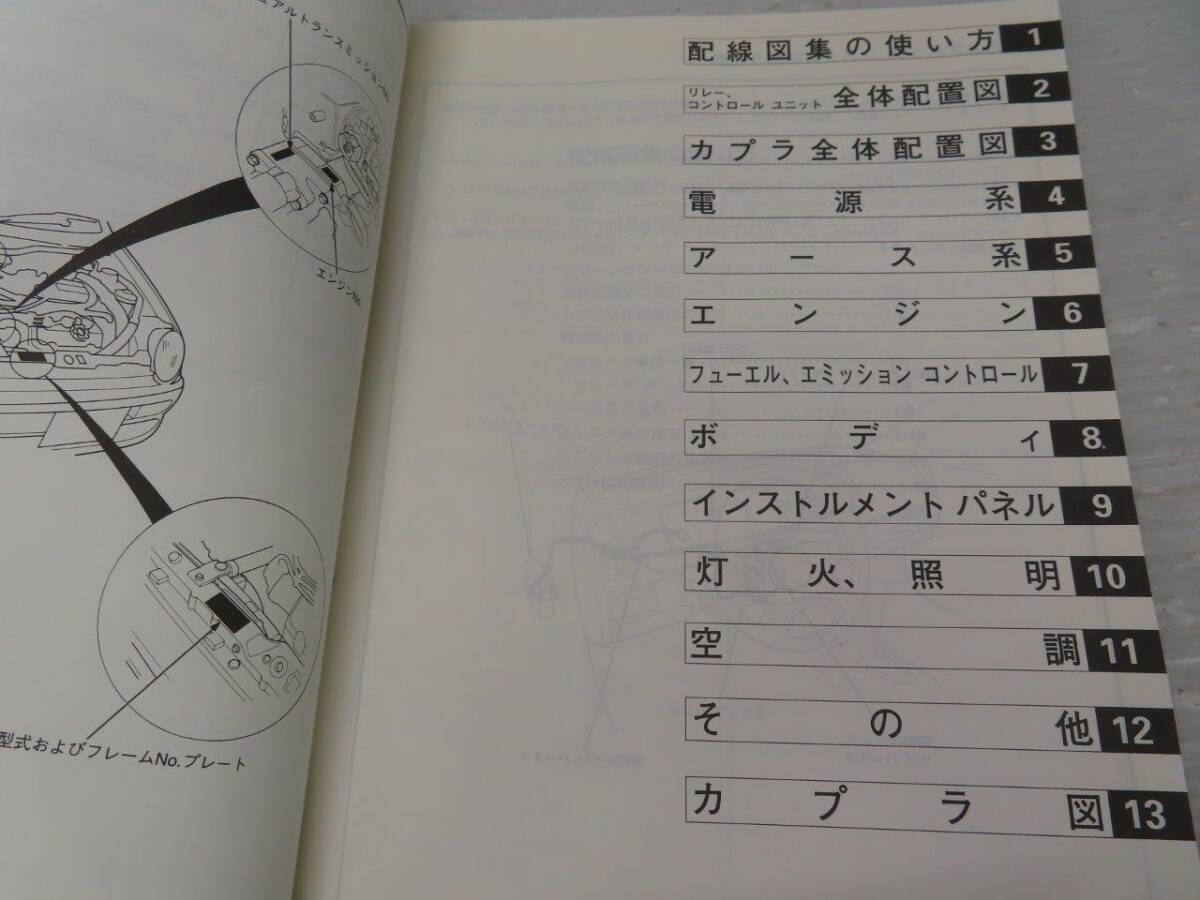 ュアルトランスミッションNo.
エンジンNo.
型式およびフレームNo.プレート
配線図集の使い方 1
リレー、
コントロール ユニット 全体配置図 2
カプラ全体配置図 3
電源系 4
アース系 5
エンジン 6
フューエル、エミッション コントロール 7
ボディ 8
インストルメント パネル 9
灯火、照明 10
空調 11
その他 12
カプラ図 13